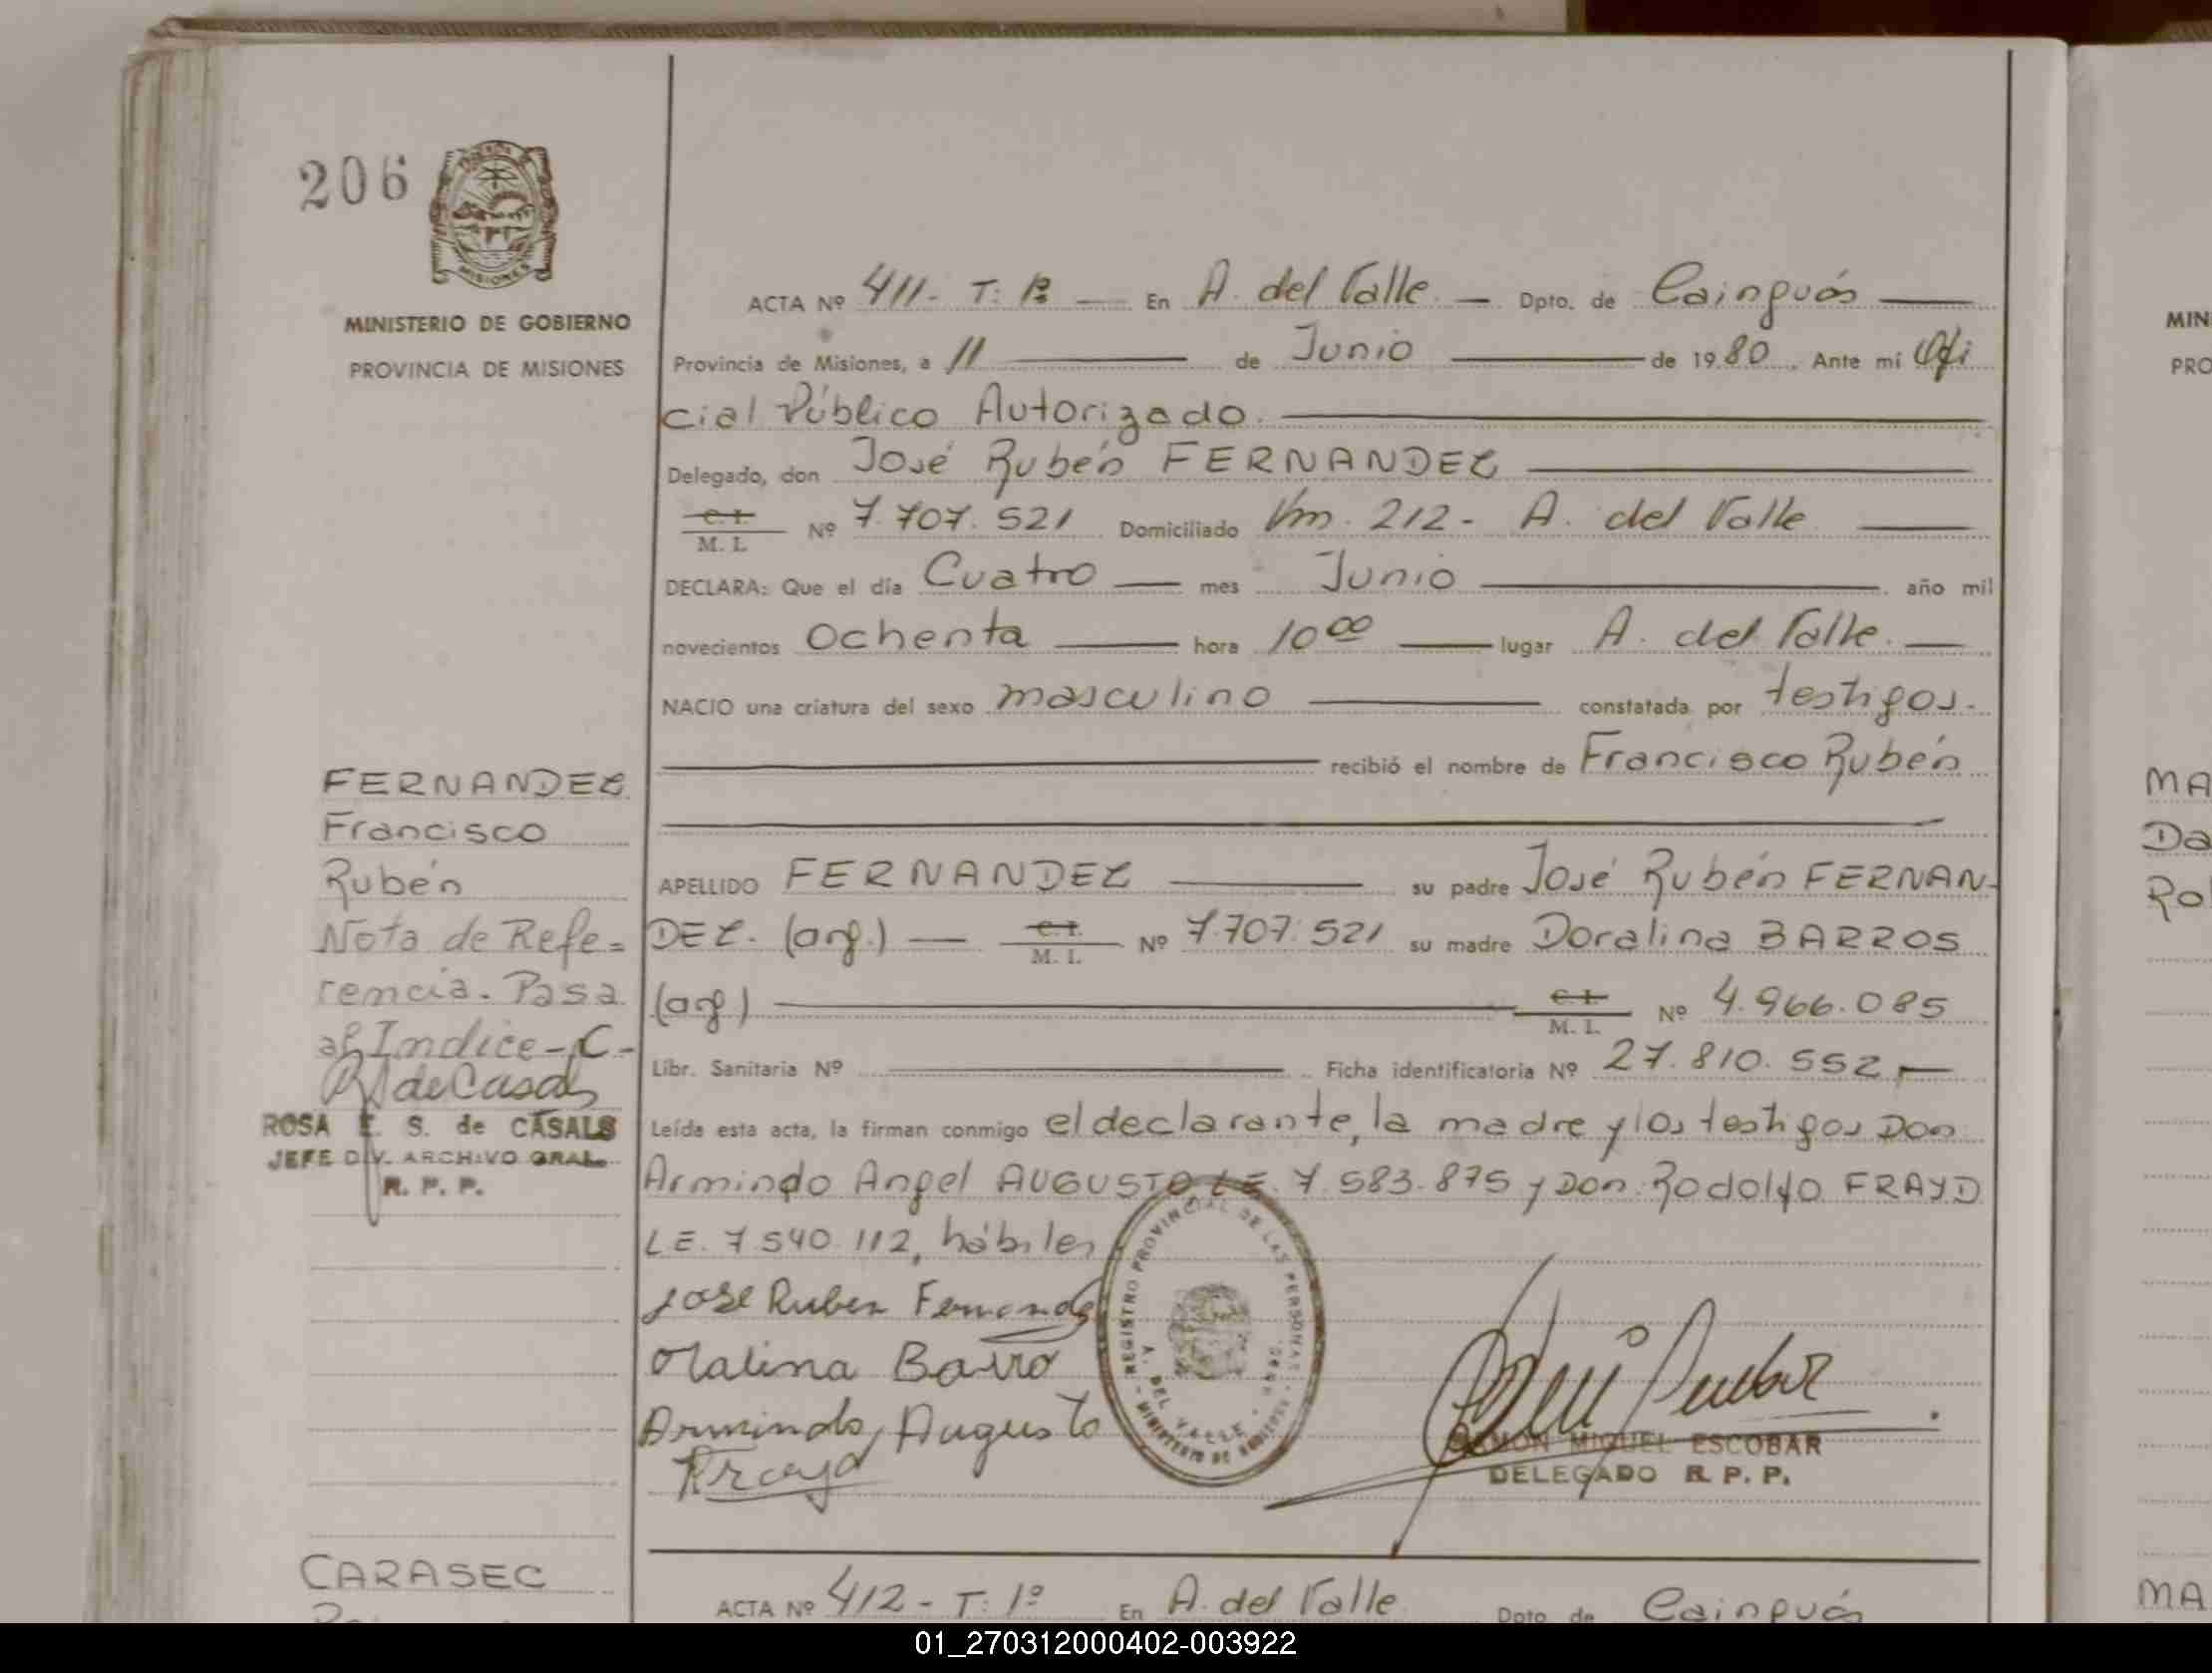 206
MISIONES
MINISTERIO DE GOBIERNO
PROVINCIA DE MISIONES
ACTA Nº 411- T: 1º En A. del Valle Dpto. de Cainguás
Provincia de Misiones, a 11 de Junio de 1980. Ante mí Ofi
cial Público Autorizado.
Delegado, don José Rubén FERNANDEZ
C. I. M. I. Nº 7.707.521 Domiciliado Km. 212- A. del Valle
DECLARA: Que el día Cuatro mes Junio año mil
novecientos Ochenta hora 10 00 lugar A. del Valle.
NACIO una criatura del sexo masculino constatada por testigos.
recibió el nombre de Francisco Rubén
APELLIDO FERNANDEZ su padre José Rubén FERNAN-
DEZ. (arg.) C. I. M. I. Nº 7.707.521 su madre Doralina BARROS
(arg) C. I. M. I. Nº 4.966.085
Libr. Sanitaria Nº Ficha identificatoria Nº 27.810.552
Leída esta acta, la firman conmigo el declarante, la madre y los testigos Don
Armindo Angel AUGUSTO LE. 7.583.875 y Don Rodolfo FRAYD
LE. 7.540.112, hábiles
José Ruben Fernandez
Armindo Augusto
REGISTRO PROVINCIAL DE LAS PERSONAS
A. DEL VALLE
RAMON MIGUEL ESCOBAR
DELEGADO R. P. P.
FERNANDEZ
Francisco
Rubén
Nota de Refe=
rencia. Pasa
al Indice-C-
de Casals
ROSA E. S. de CASALS
JEFE DIV. ARCHIVO GRAL.
R. P. P.
CARASEC
ACTA Nº 412- T: 1º En A. del Valle Dpto de Cainguás
MIN
PRO
MA
Da
Ro
MA
01_270312000402-003922